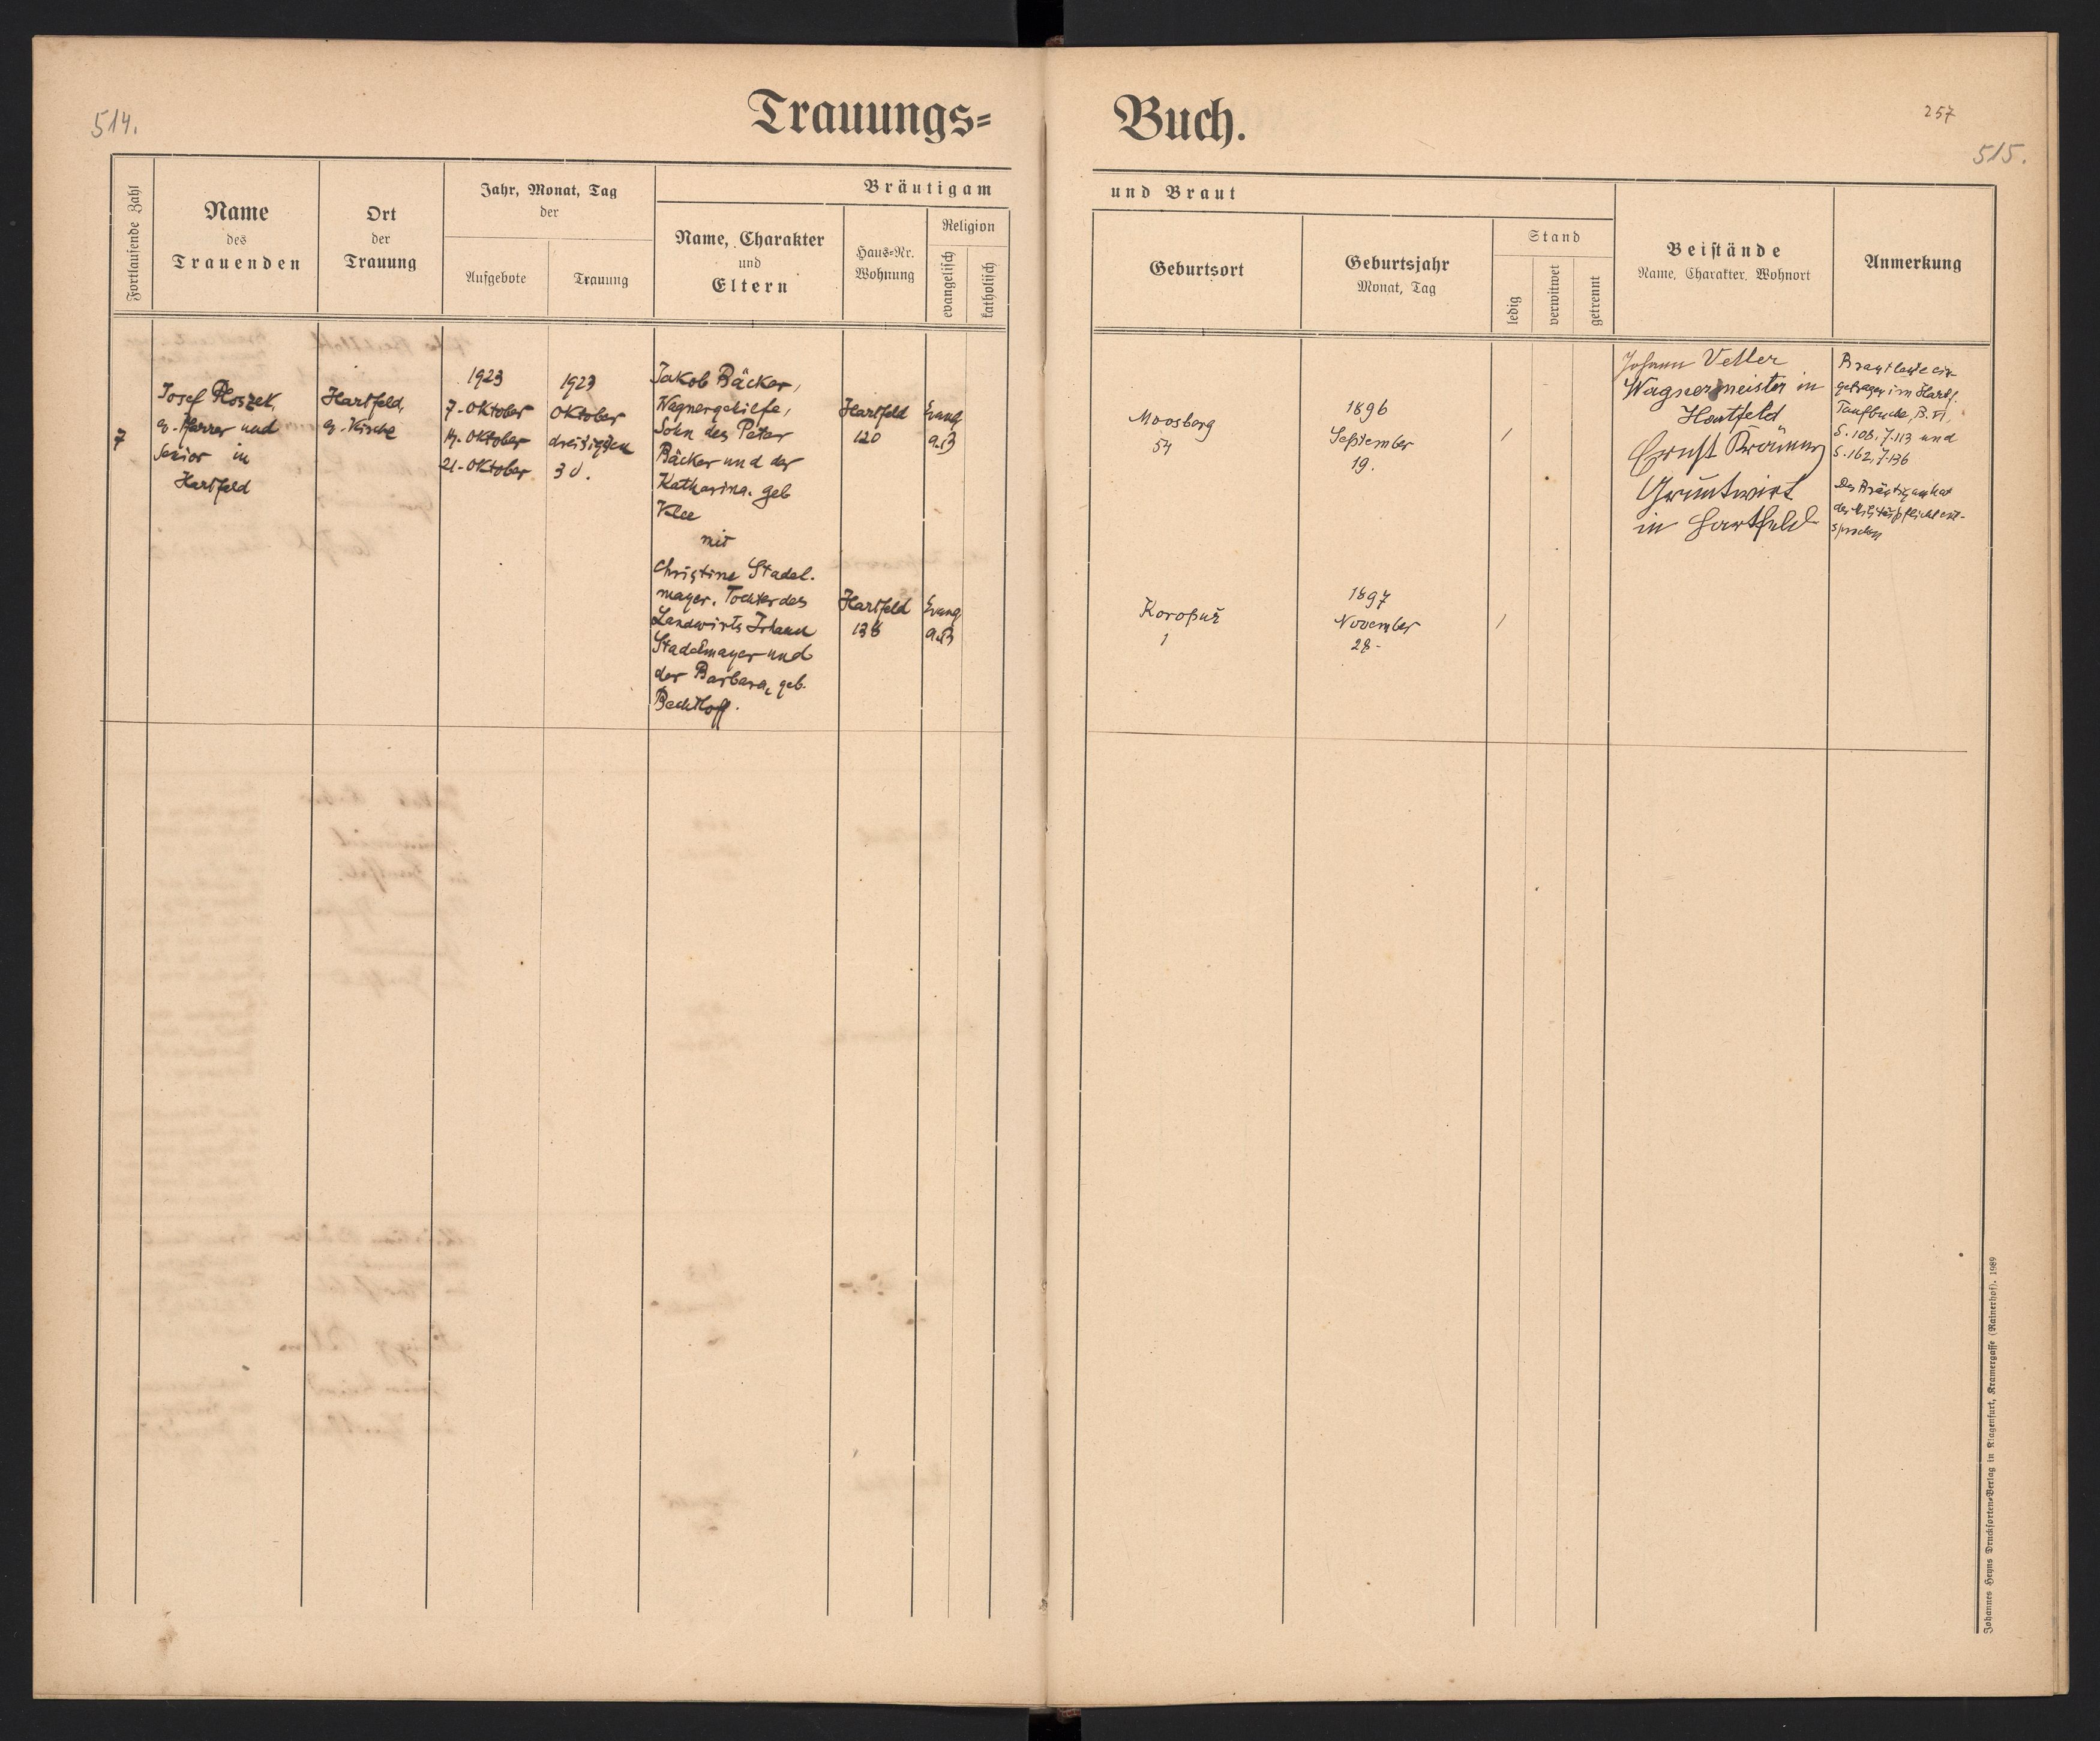 514.
Trauungs=
Fortlaufende Zahl
Name
des
Trauenden
Ort
der
Trauung
Jahr, Monat, Tag
der
Aufgebote
Trauung
Bräutigam
Name, Charakter
und
Eltern
Haus-Nr.
Wohnung
Religion
evangelisch
katholisch
7
Josef Ploszek,
ev. Pfarrer und
Senior in
Hartfeld
Hartfeld,
ev. Kirche
1923
7. Oktober
14. Oktober
21. Oktober
1923
Oktober
dreisigsten
30.
Jakob Bäcker,
Wagnergehilfe,
Sohn des Peter
Bäcker und der
Katharina, geb
Klee
mit
Christine Stadel.
mayer, Tochter des
Landwirts Johann
Stadelmayer und
der Barbara, geb.
Bechtloff.
Hartfeld
120
Evang
a.B
Hartfeld
138
Evang
a.B
Buch.
257
515.
und Braut
Geburtsort
Geburtsjahr
Monat, Tag
Stand
ledig
verwitwet
getrennt
Beistände
Name, Charakter, Wohnort
Anmerkung
Moosberg
54
1896
September
19.
/
Koropuž
1
1897
November
28.
/
Johann Vetter
Wagnermeister in
Hartfeld
Ernst Bräunig
Grundwirt
in Hartfeld
Brautleute ein-
getragen im Hartf.
Taufbuche, B. VI,
S. 108, Z. 113 und
S. 162, Z. 136
Der Bräutigam hat
der Militärpflicht ent-
sprochen
Johannes Heyns Drucksorten-Verlag in Klagenfurt, Kramergasse (Rainerhof). 1989